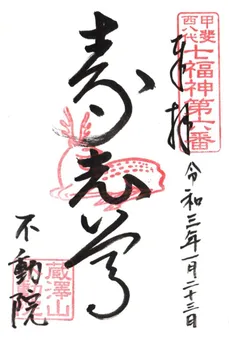 甲斐
西八代
七福神第六番
奉拝
令和三年一月二十三日
寿老尊
蔵澤山
不動院